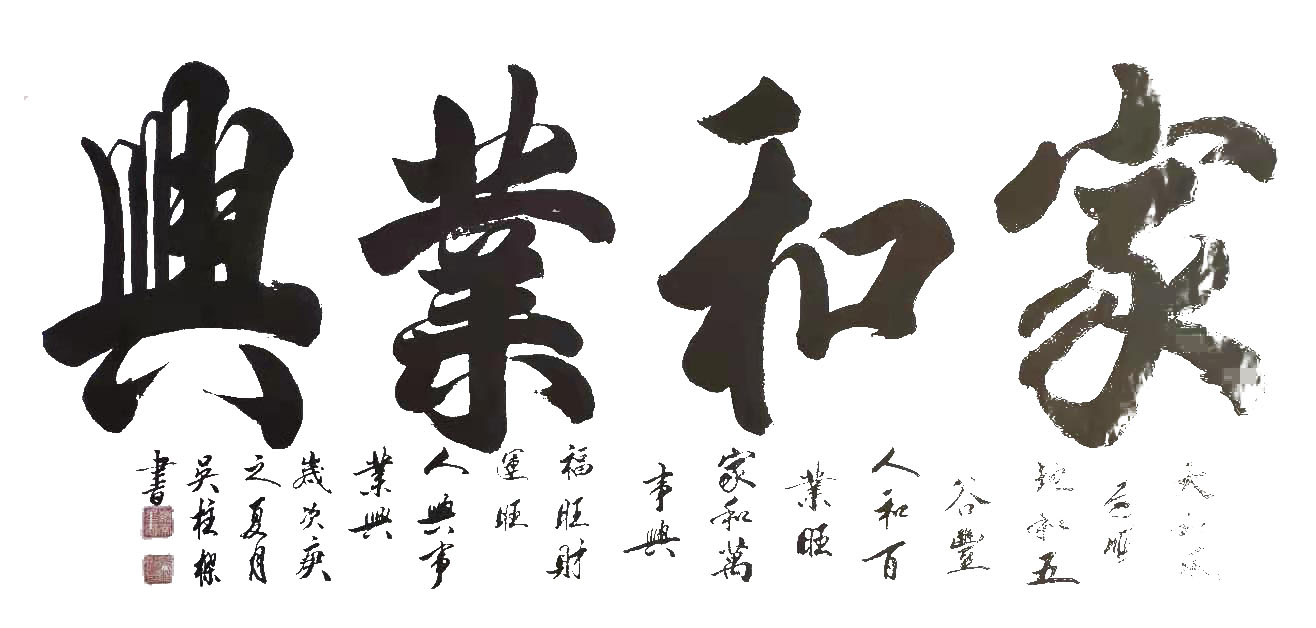 家和業興
順
地和五
谷豐
人和百
業旺
家和萬
事興
福旺財
運旺
人興事
業興
歲次庚
之夏月
吳柱樑
書